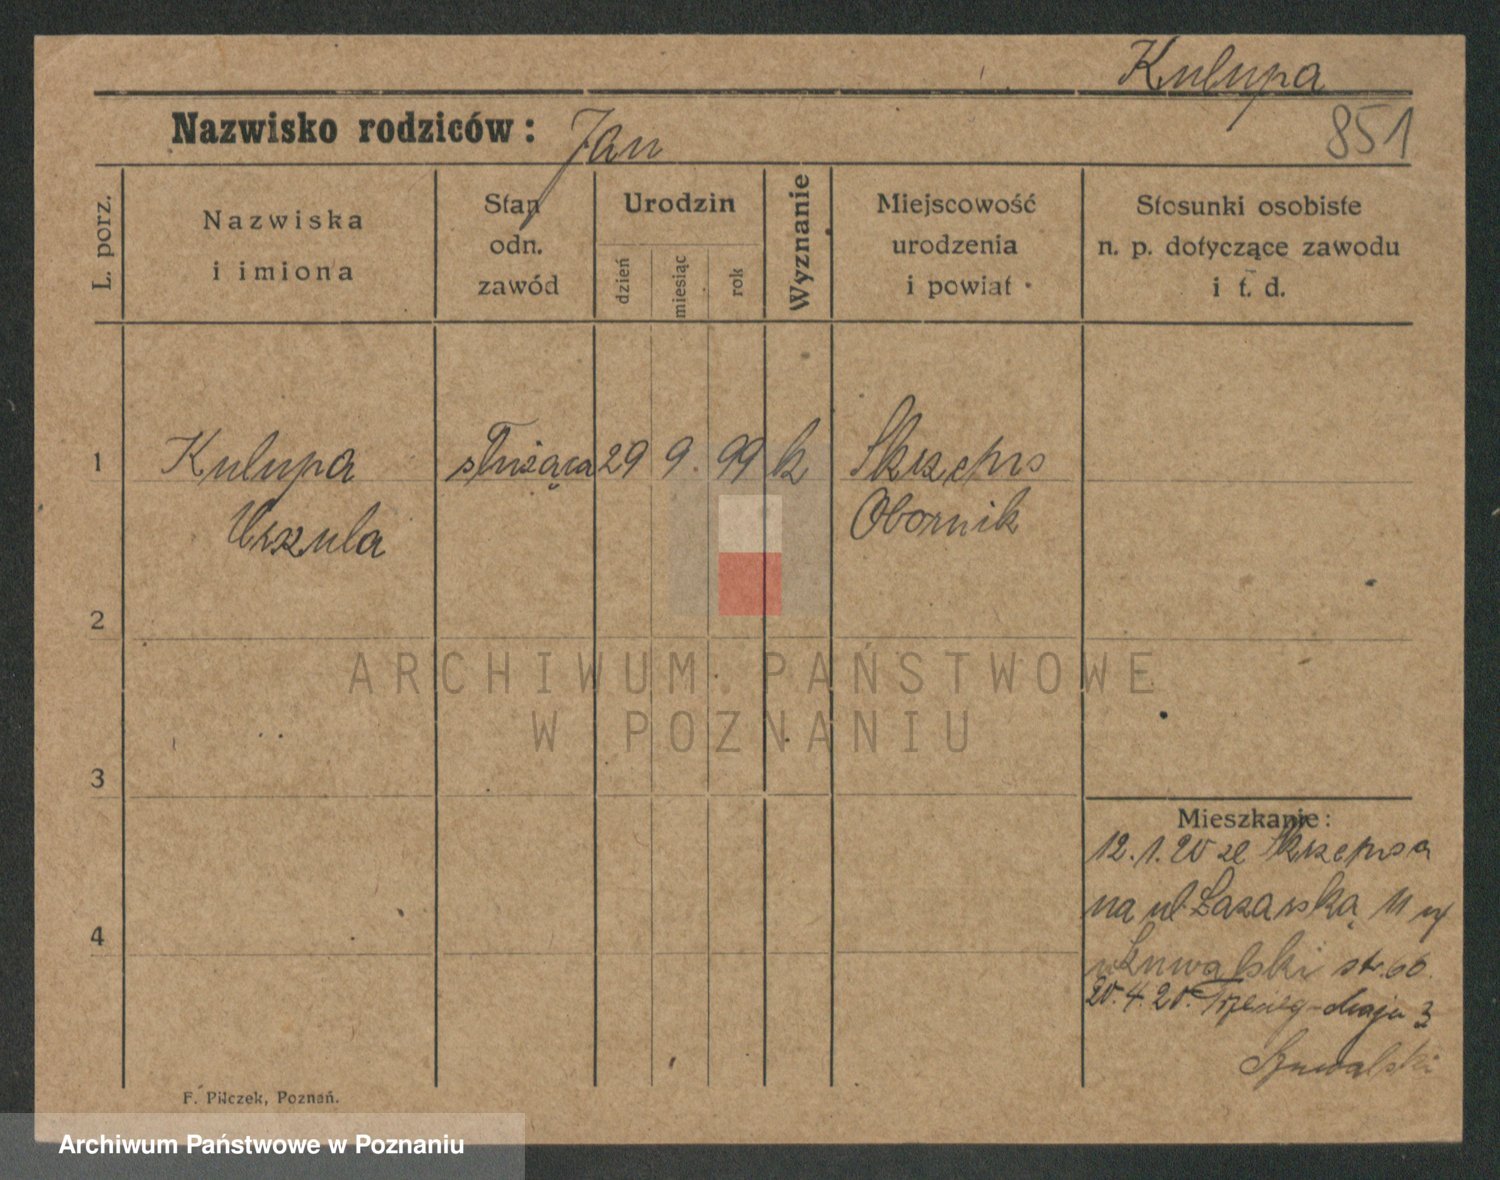 Kulupa
Nazwisko rodziców: Jan
851
L. porz.
Nazwiska
i imiona
Stan
odn.
zawód
Urodzin
dzień
miesiąc
rok
Wyznanie
Miejscowość
urodzenia
i powiat
Stosunki osobiste
n. p. dotyczące zawodu
i t. d.
1
Kulupa
Urszula
służąca
29
9.
99
k
Obornik
2
ARCHIWUM PAŃSTWOWE
W POZNANIU
3
Mieszkanie:
12.1.20 ze
na ul Łazarską 11
4
str. 66.
20.4.20. Trzeciego-Maja 3
F. Pilczek, Poznań.
Archiwum Państwowe w Poznaniu